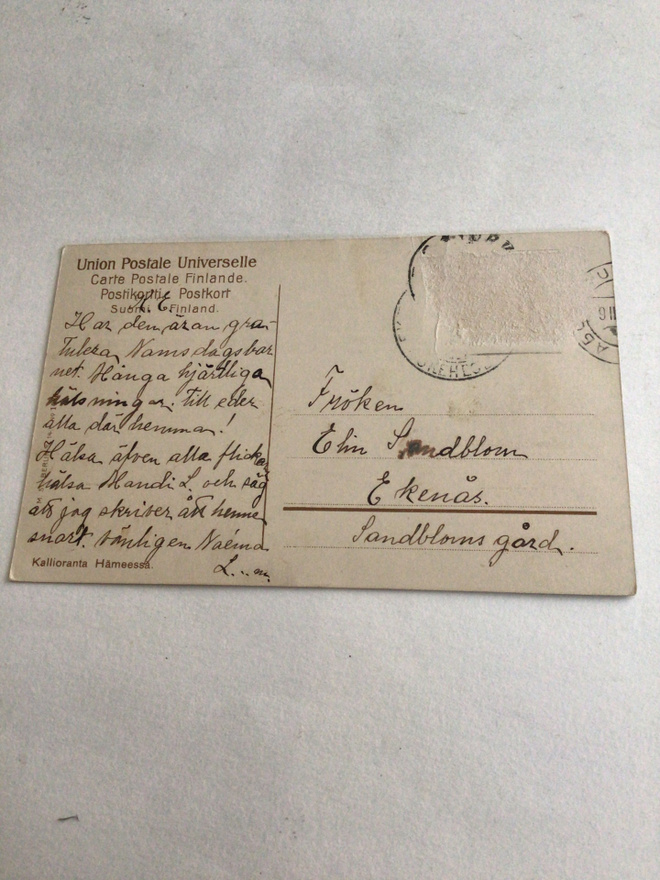 Union Postale Universelle
Carte Postale Finlande.
Postikortti Postkort
Suomi Finland.
K. E.
Har den äran gra-
tulera Namsdagsbar
net. Många hjärtliga
hälsningar till eder
alla där hemma!
Hälsa äfven alla flickor
hälsa Mandi L. och säg
att jag skriver åt henne
snart. vänligen Naema
L...m
Kallioranta Hämeessä.
Fröken
Elin Sandblom
Ekenäs.
Sandbloms gård.